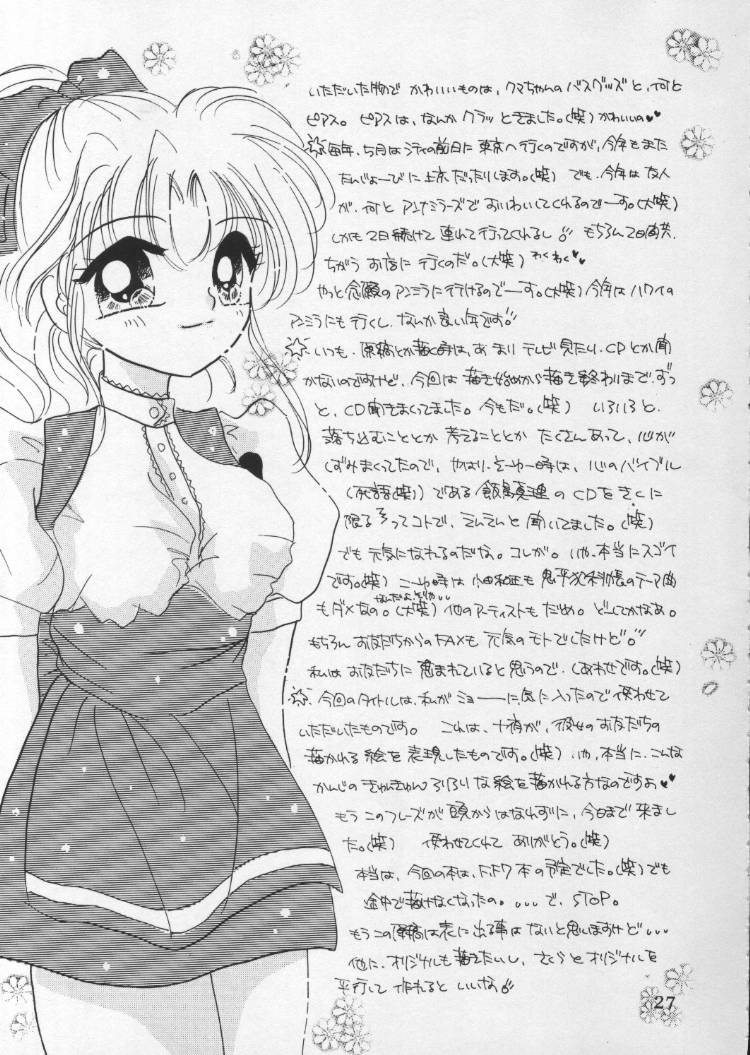 いただいた物で かわいいものは、クマちゃんのバスグッズと、何と
ピアス。ピアスは、なんか クラッ ときました。(笑) かわいいの♥♥
☆毎年、5月はシティの前日に 東京へ行くのですが、今年もまた
たんじょーびに上京だったりします。(笑) でも、今年は友人
が、何と アンナミラーズで おいわいしてくれるのでーす。(大笑)
しかも 2日続けて 連れて行ってくれるし。 もちろん 2日共、
ちがう お店に 行くのだ。(大笑) わくわく♥♥
やっと念願の アンミラに行けるのでーす。(大笑) 今年は ハワイの
アンミラにも行くし、なんか良い年です。
☆いつも、原稿とか描く時は、あまり テレビ見たり、CDとか聞
かないのですけど、今回は描き始めから描き終わりまで、ずっ
と、CD聞きまくってました。今もだ。(笑) いろいろと、
落ち込むこととか 考えることとか たくさんあって、心が
しずみまくってたので、やはり、そーゆー時は、心のバイブル
(死語(笑))である 飯島真理 のCDをきくに
限るってコトで、えんえんと 聞いてました。(笑)
でも 元気になれるのだな。コレが。いや、本当にスゴイ
です。(笑) こーゆー時は 小田和正も 鬼平犯科帳のテーマ曲
もダメなの。(大笑) 他のアーティストも だめ。どーしてかなあ。
もちろん お友だちからのFAXも 元気のモトでしたけど。
私は お友だちに 恵まれていると思うので、しあわせです。(笑)
☆今回のタイトルは、私が ミョーーに気に入ったので 使わせて
いただいたものです。 これは、が、彼女のお友だちの
描かれる絵を 表現したものです。(笑) いや、本当に、こんな
かんじの きゅんきゅん ぷりぷり な絵を描かれる方なのですぉ♥♥
もう このフレーズが 頭からはなれずに、今日まで 来まし
た。(笑) 使わせてくれて ありがとう。(笑)
本当は、今回の本は、FF7 本の予定でした。(笑)でも
途中で描けなくなったの。...で、STOP。
もう この原稿は表に出る事は ないと思いますけど...
他に、オリジナルも描きたいし、さくらとオリジナルを
平行して 作れると いいな。
27